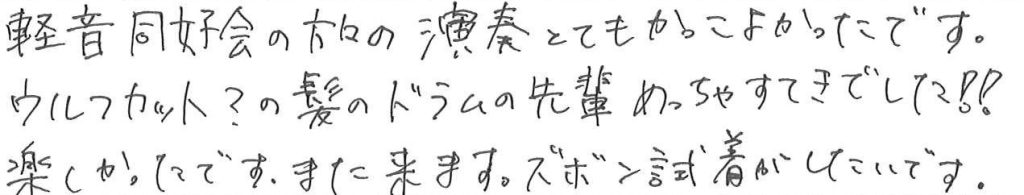 軽音同好会の方々の演奏とてもかっこよかったです。
ウルフカット？の髪のドラムの先輩めっちゃすてきでした!!
楽しかったです、また来ます。ズボン試着がしたいです。